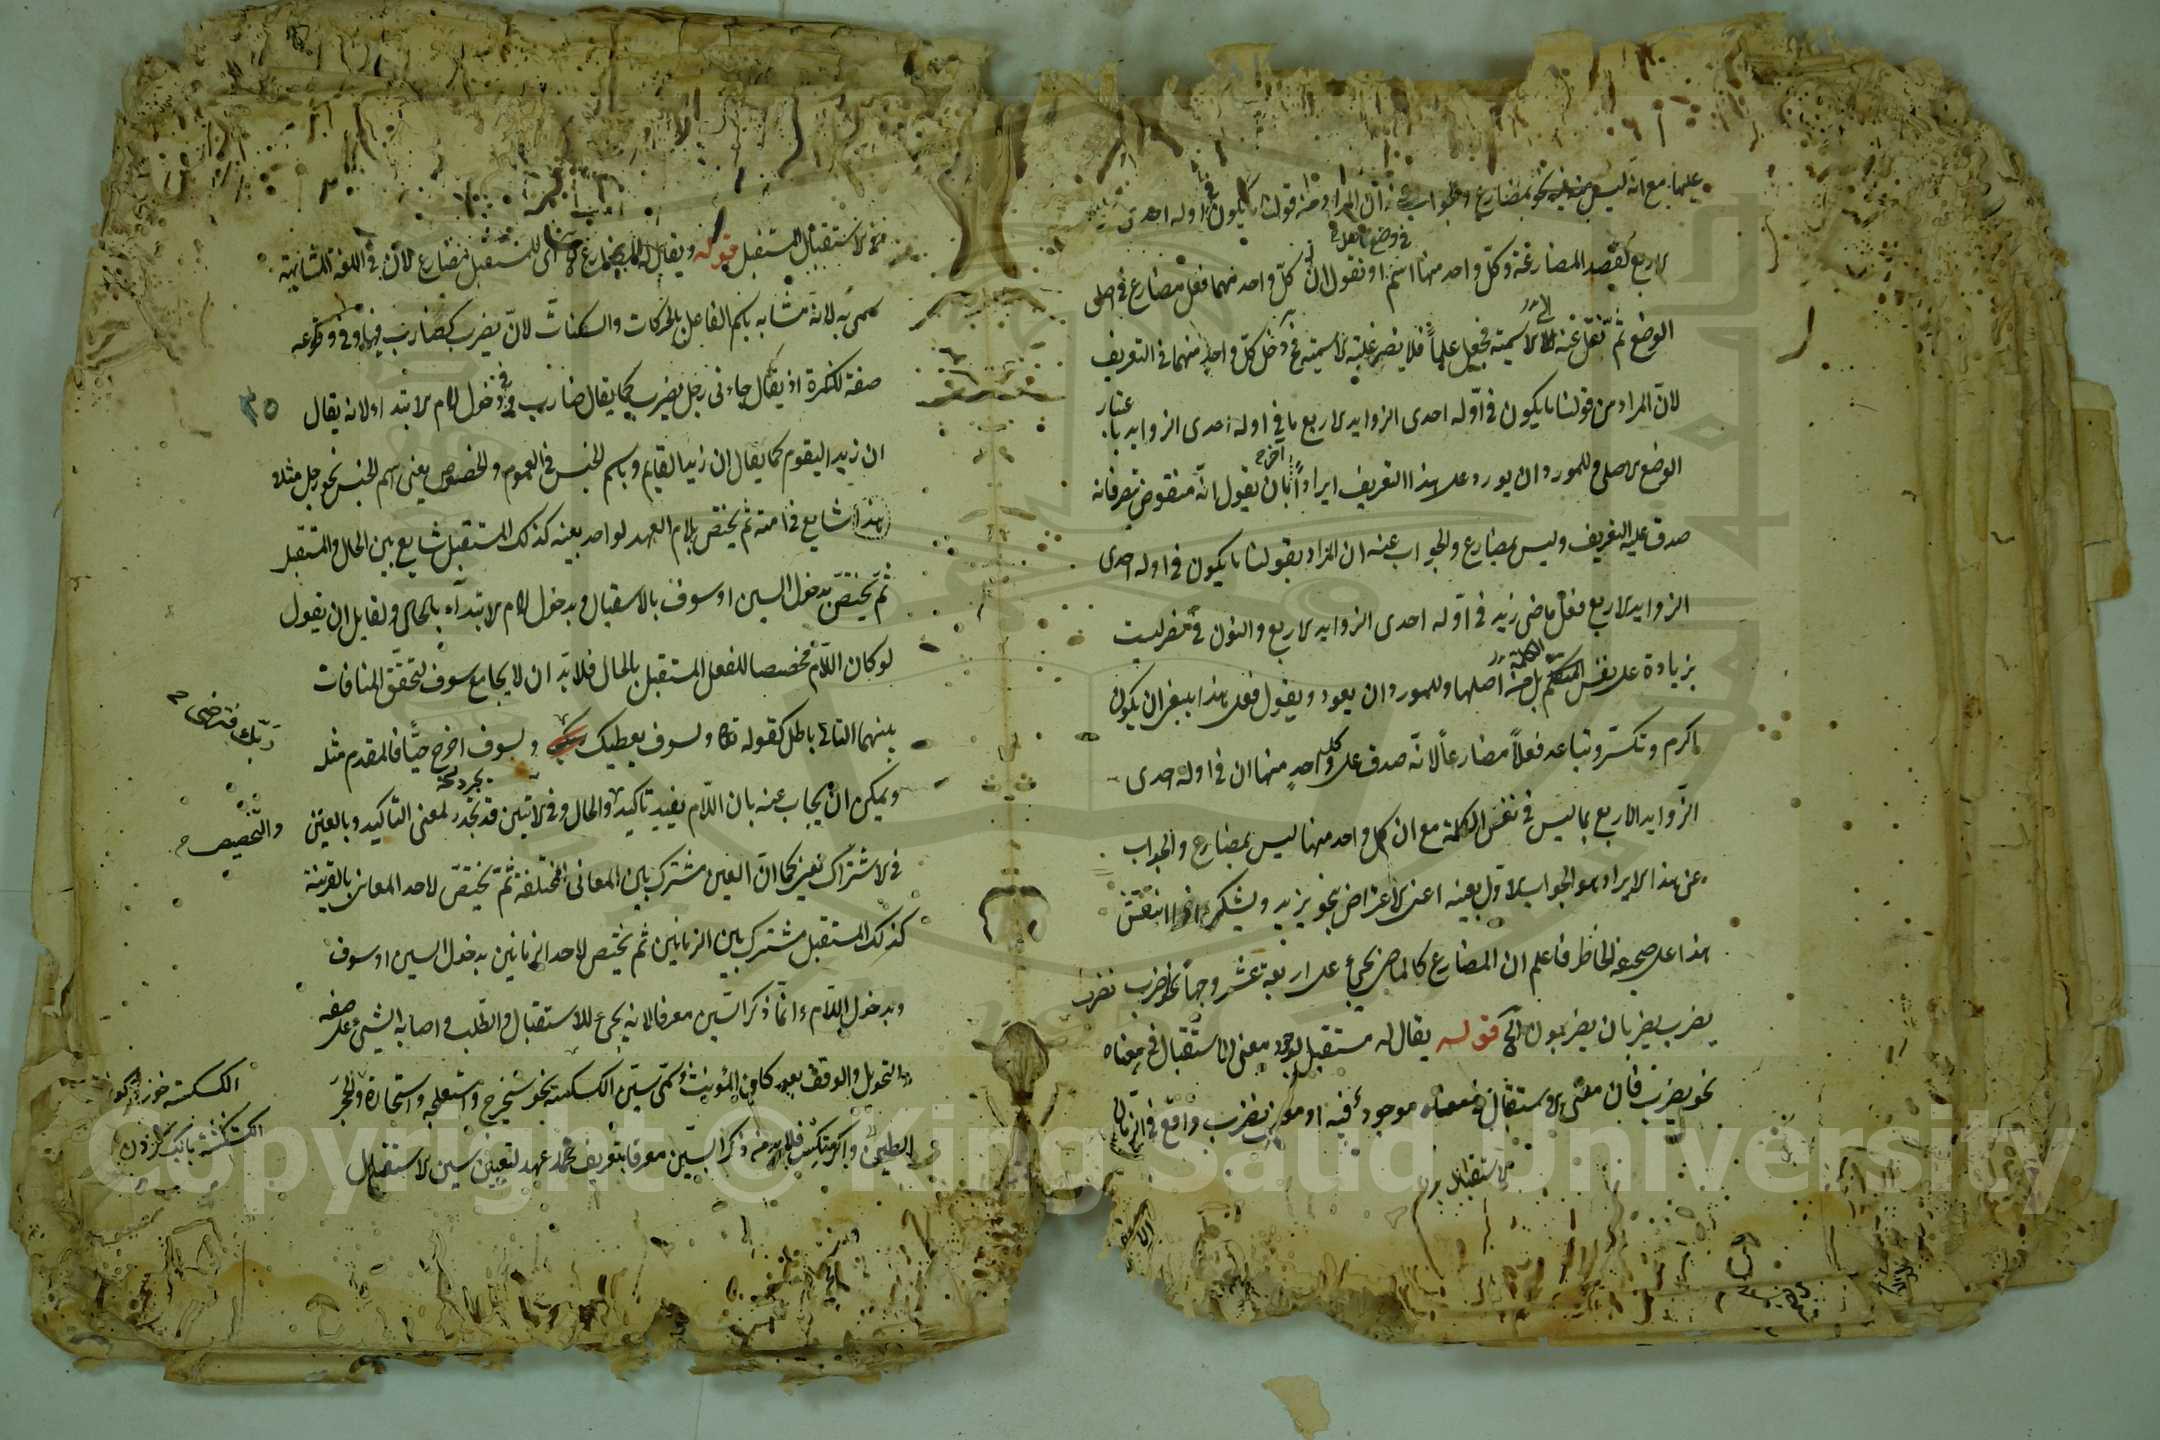 عليهما مع انه ليس بمضارع والجواب عنه ان المراد من قولنا ما يكون في اوله احدى
في وضع الفعل
الاربع لقصد المضارعة وكل واحد منهما اسم او نقول ان كل واحد منهما فعل مضارع في اصل
الوضع ثم نقل عنه الى الاسمية فجعل علما فلا يضر غلبة الاسمية فدخل كل واحد منهما في التعريف
لان المراد من قولنا ما يكون في اوله احدى الزوايد الاربع ما في اوله احدى الزوايد باعتبار
الوضع الاصلي وللمورد ان يورد على هذا التعريف ايرادا آخر بان يقول انه منقوض بنصر فانه
صدق عليه التعريف وليس بمضارع والجواب عنه ان المراد بقولنا ما يكون في اوله احدى
الزوايد الاربع فعل ماض زيد في اوله احدى الزوايد الاربع والنون في نصر ليست
بزيادة على نفس الكلمة بل من اصلها وللمورد ان يعود ويقول فعلى هذا ينبغي ان يكون
اكرم وتكسر وتباعد فعلا مضارعا لانه صدق على كل واحد منها ان في اوله احدى
الزوايد الاربع بما ليس في نفس الكلمة مع ان كل واحد منها ليس بمضارع والجواب
عن هذا الايراد هو الجواب الاول بعينه اعني الاعتراض بنحو يزيد ويشكر اذا انتقش
هذا على صحيفة الخاطر فاعلم ان المضارع كالماضي يجئ على اربعة عشر وجها نحو اضرب نضرب
يضرب يضربان يضربون الخ قوله يقال له مستقبل لوجود معنى الاستقبال في معناه
نحو يضرب فان معنى الاستقبال في معناه موجود فيه او معنى يضرب واقع في الزمان
الاستقبال
من الاستقبال المستقبل قوله ويقال له المضارع اي للمستقبل مضارع لان في اللغة المشابهة
سمي به لانه مشابه باسم الفاعل بالحركات والسكنات لان يضرب كضارب فيهما وفي وقوعه
صفة للنكرة اذ يقال جاءني رجل يضرب كما يقال ضارب وفي دخول لام الابتداء لانه يقال
ان زيدا ليقوم كما يقال ان زيدا لقايم وباسم الجنس في العموم والخصوص يعني اسم الجنس نحو رجل مثلا
هذا شايع في امته ثم يختص بلام العهد لواحد بعينه كذلك المستقبل شايع بين الحال والمستقبل
ثم يختص بدخول السين او سوف بالاستقبال وبدخول لام الابتداء بالحال ولقايل ان يقول
لو كان اللام مخصصا للفعل المستقبل بالحال فلابد ان لا يجامع سوف لتحقق المنافات
بينهما التالي باطل كقوله تعالى ولسوف يعطيك ولسوف اخرج حيا فالمقدم مثله
ربك فترضى
ويمكن ان يجاب عنه بان اللام يفيد تاكيد والحال وفي الآيتين قد تجرد لمعنى التاكيد وبالعين
والتخصيص
في الاشتراك يعني كما ان العين مشترك بين المعاني المختلفة ثم يختص لاحد المعاني بالقرينة
كذلك المستقبل مشترك بين الزمانين ثم يختص لاحد الزمانين بدخول السين او سوف
وبدخول اللام انما ذكر السين معرفا لانه يجئ للاستقبال والطلب واصابة الشئ على صفة
والتحويل والوقف بعد كاف المؤنث وسمي سين الكسكسة نحو سيخرج واستعجله واستحارة والحجر
الكسكسة
الطين واكرمتكس فلابد منه ذكر السين معرفا بتعريف عهد لتعين سين الاستقبال
الكشكشة
٣٥
Copyright © King Saud University